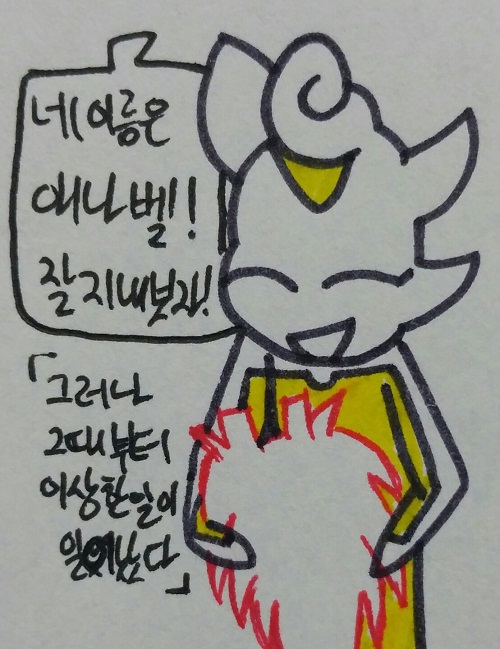 네 이름은
애나벨!
잘 지내보자!
「그러나
그때부터
이상한 일이
일어났다」